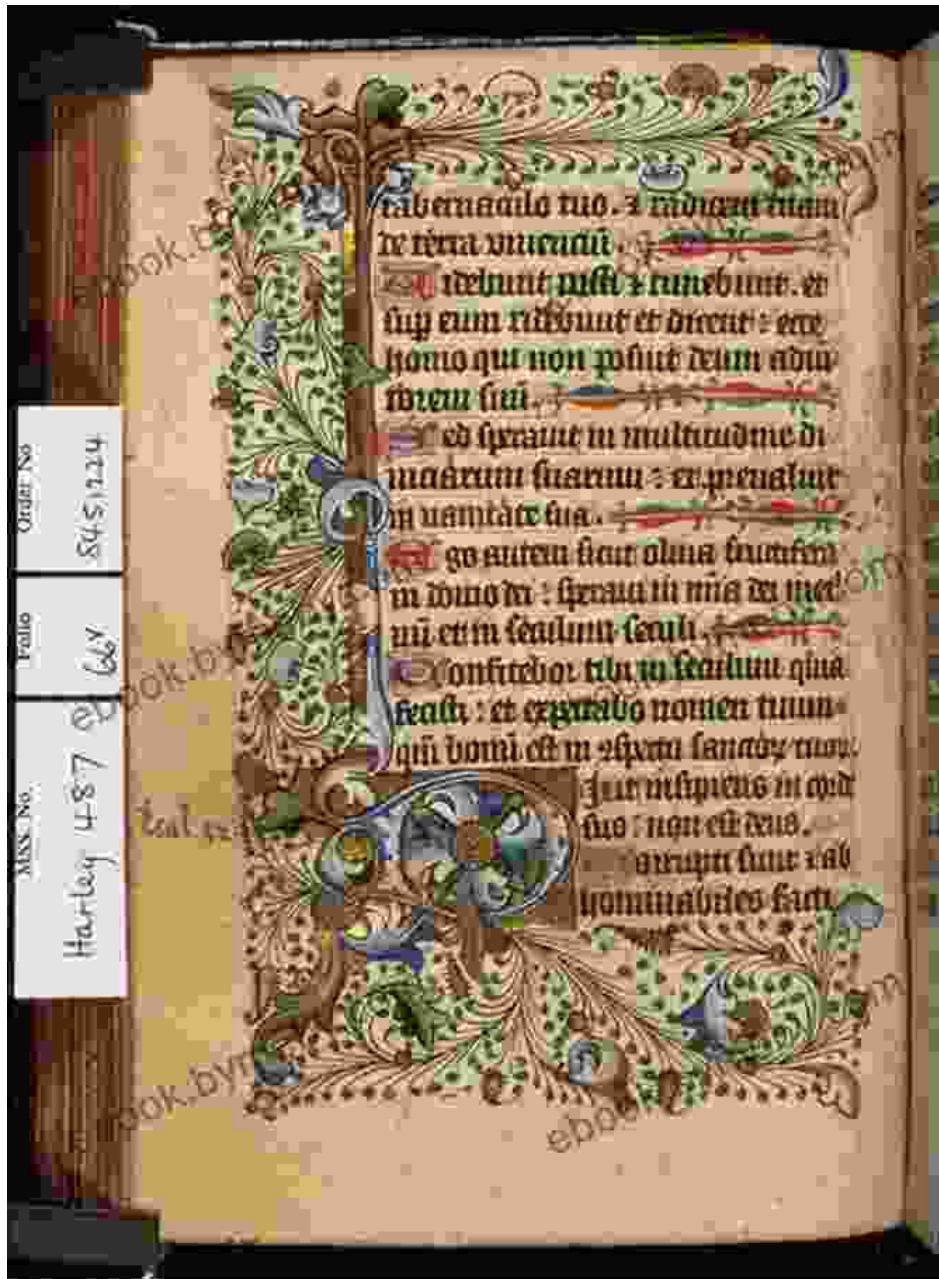 tabernaculo tuo. ⁊ radicem tuam
de terra viuenciū.
Videbunt iusti ⁊ timebunt. et
sup eum ridebunt et dicent : ecce
homo qui non posuit deum adiu
torem suū.
Sed sperauit in multitudine di
uiciarum suarum : et preualuit
in uanitate sua.
Ego autem sicut oliua fructifera
in domo dei : speraui in mīa dei mei
nū et in seculum seculi.
Confitebor tibi in seculum quia
fecisti : et expectabo nomen tuum
qm̄ bonū est in ɔspectu sanctoꝝ tuoꝝ.
Dixit insipiens in cord
suo : non est deus.
Corrupti sunt ⁊ ab
hominabiles facti
MSS. No. Harley 487
Folio 66v
Order No 8451224